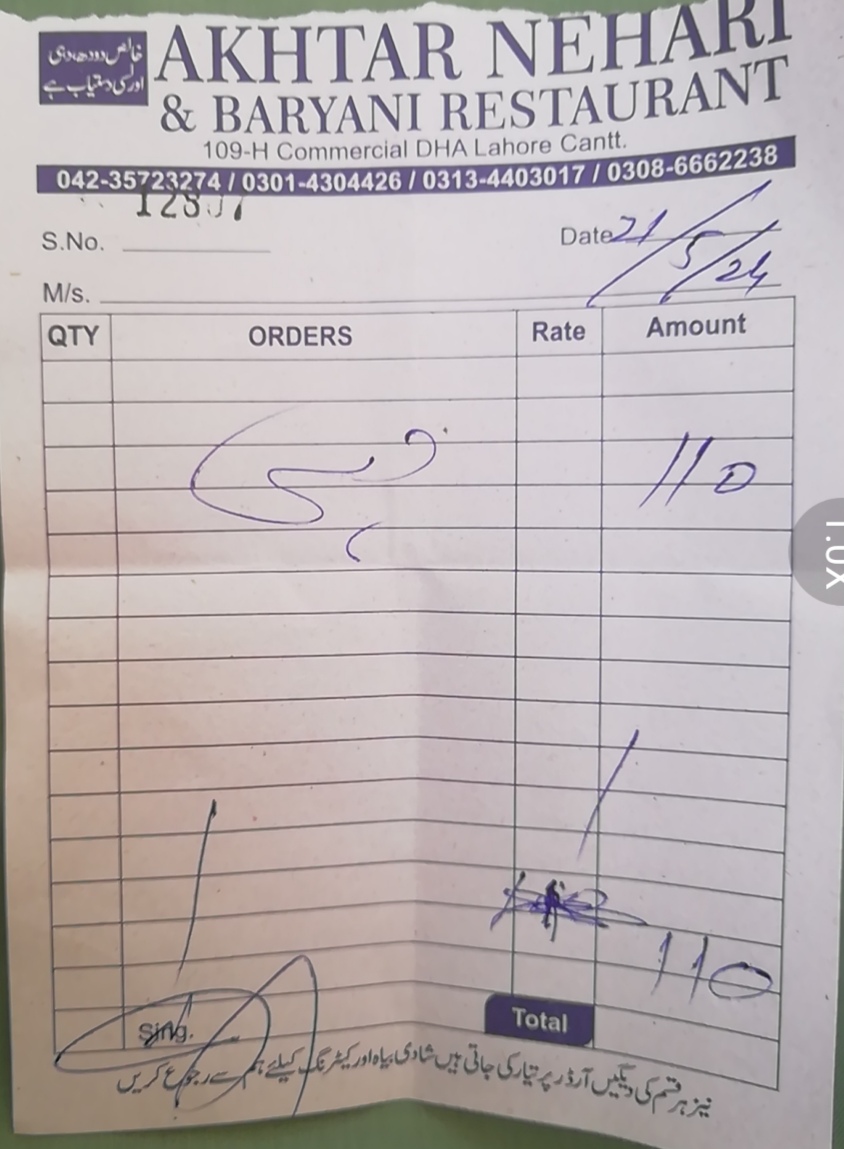 خالص دودھ دہی
اور لسی دستیاب ہے
AKHTAR NEHARI
& BARYANI RESTAURANT
109-H Commercial DHA Lahore Cantt.
042-35723274 / 0301-4304426 / 0313-4403017 / 0308-6662238
S.No.
Date 21/5/24
M/s.
QTY ORDERS Rate Amount
110
110
Total
Sing.
نیز ہر قسم کی دیگیں آرڈر پر تیار کی جاتی ہیں شادی بیاہ اور کیٹرنگ کیلئے ہم سے رجوع کریں
1.0x